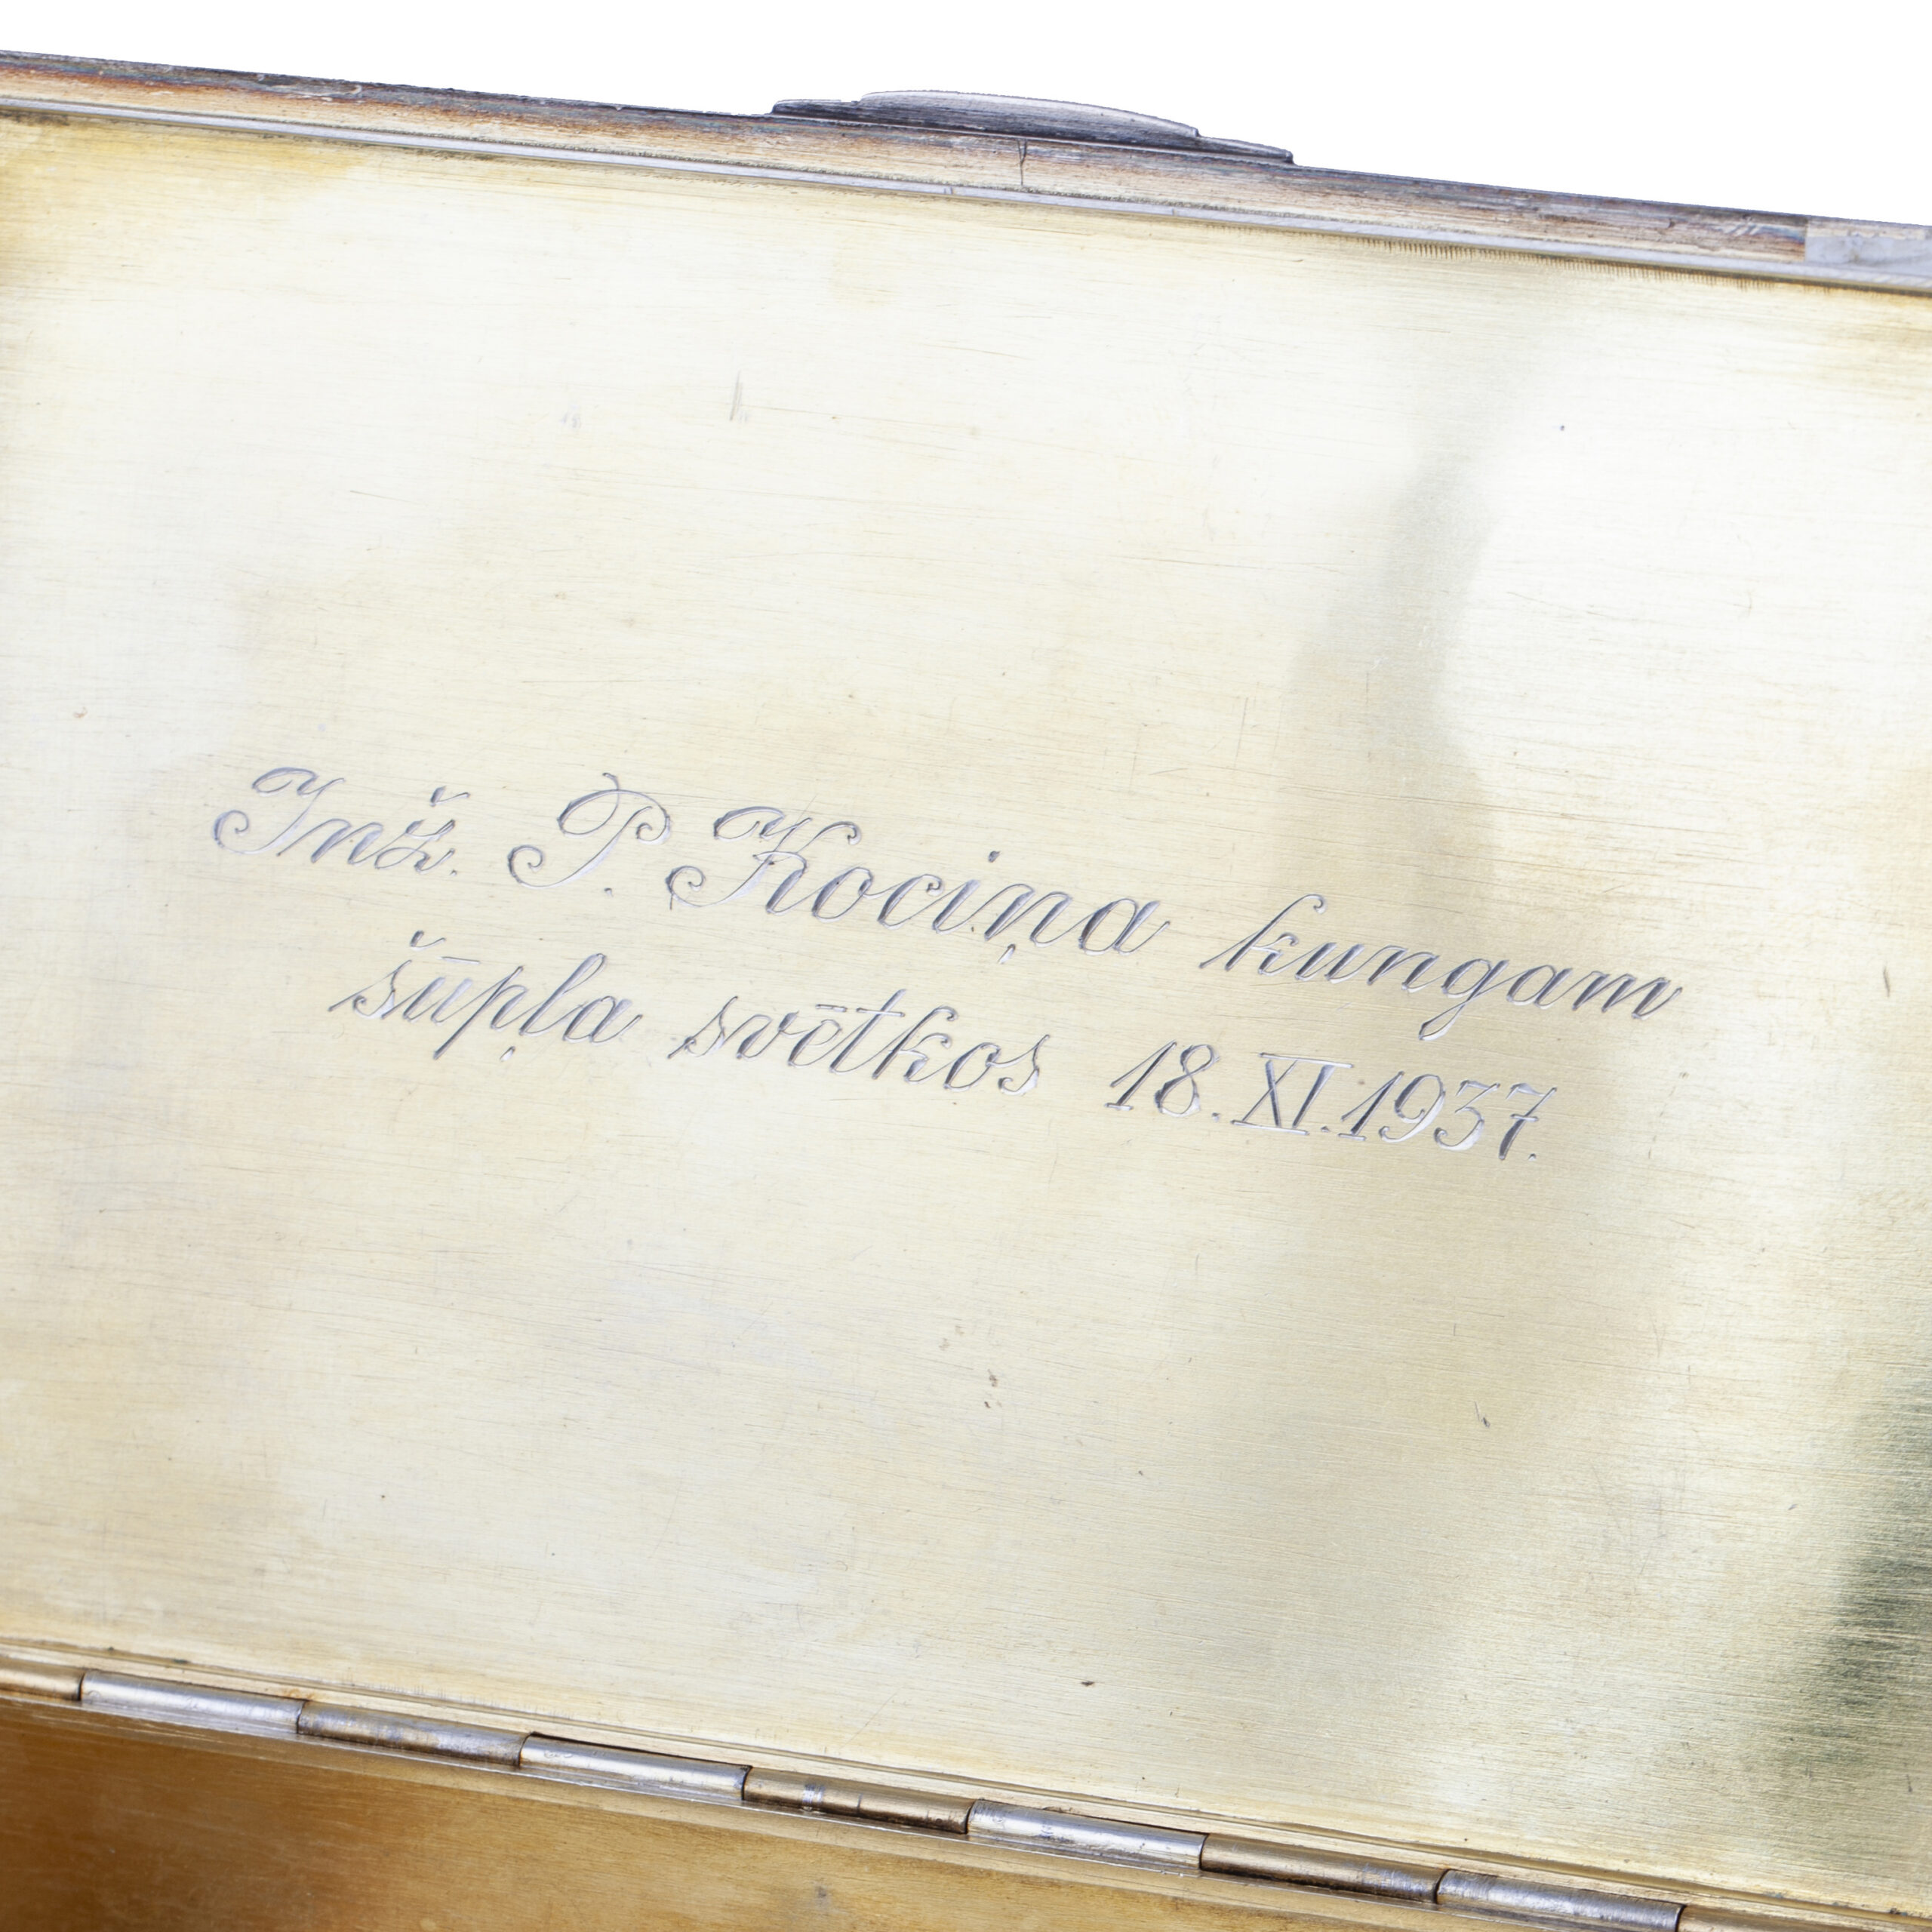 Inž. P. Kociņa kungam
šūpļa svētkos 18.XI.1937.